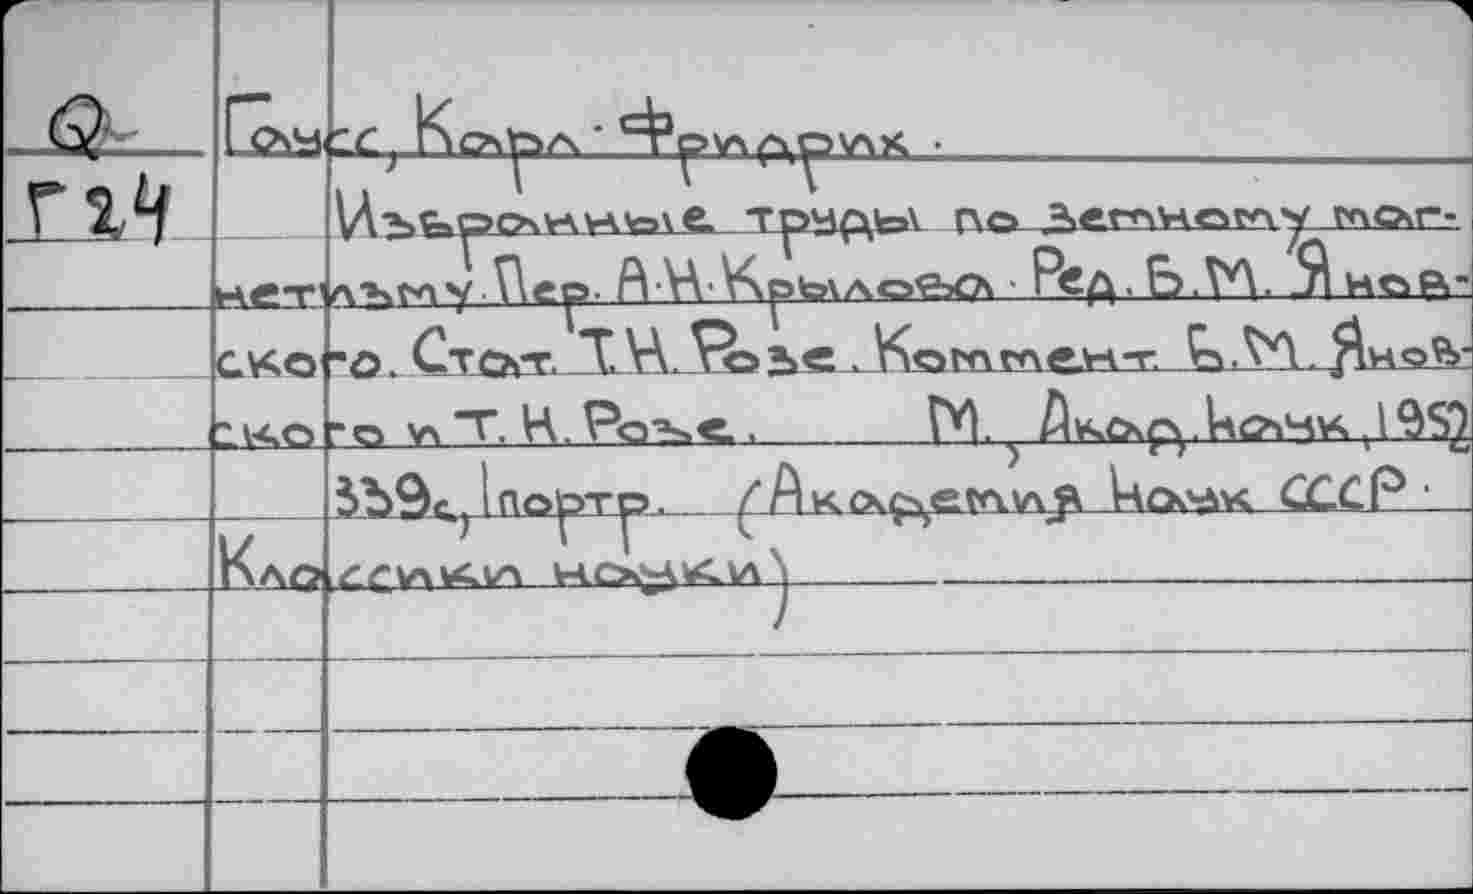 Q Гаусс, Карл Фридрих.
Г24 Избранные труды по земному маг-
нетизму. Пер. А.Н. Крылова. Ред. Б.М. Янов-
ского. Стат. Т.Н. Розе. Коммент. Б.М. Янов-
ского и Т.Н. Розе. М., Акад. наук, 1952
339с, 1портр. (Академия Наук СССР.
Классики науки)